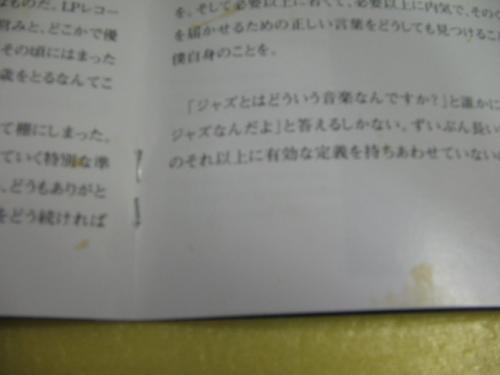 を、そして必要以上に若くて、必要以上に内気で、その
を届かせるための正しい言葉をどうしても見つけるこ
僕自身のことを。
「ジャズとはどういう音楽なんですか？」と誰かに
ジャズなんだよ」と答えるしかない。ずいぶん長い
のそれ以上に有効な定義を持ちあわせていない
なものだ。LPレコー
営みと、どこかで優
その頃にはまった
歳をとるなんてこ
て棚にしまった。
ていく特別な準
、どうもありがと
をどう続ければ